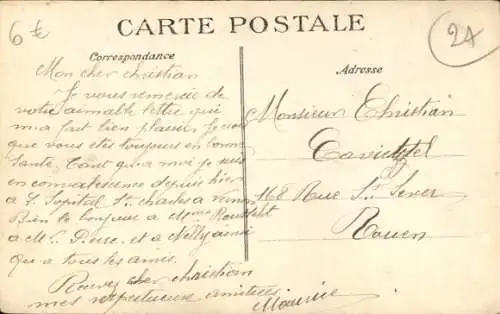 CARTE POSTALE
6 €
2A
Correspondance
Mon cher christian
Je vous remercie de
votre aimable lettre qui
m'a fait bien plaisir Je vois
que vous etes toujours en bonne
Sante, Tant qu'a moi je suis
en convalescence depuis hier
a L'opital St charles a
Bien le bonjour a Mme Rousselet
a Mr Pierre et a Nelly ainsi
que a tous les amis.
Recevez cher christian
mes respectueuse amitiées
Maurice
Adresse
Monsieur Christian
168 Rue St Sever
Rouen